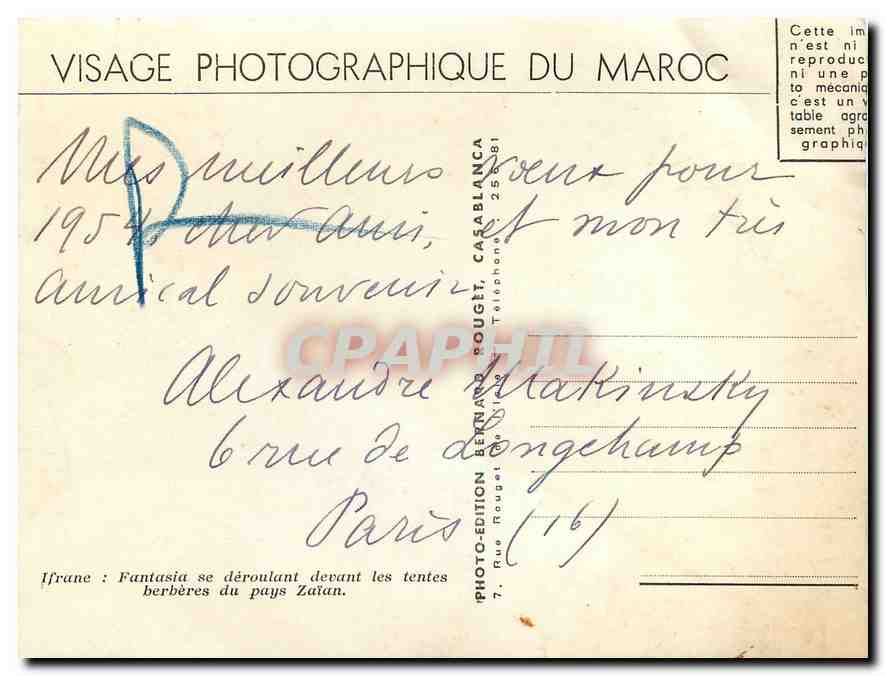 VISAGE PHOTOGRAPHIQUE DU MAROC
Cette im
n'est ni
reproduc
ni une p
to mécaniq
c'est un v
table agra
sement ph
graphiq
R
Mes meilleurs vœux pour
1954, cher ami, et mon très
amical souvenir
Alexandre Makinsky
6 rue de Longchamp
Paris (16)
CPAPHIL
PHOTO-EDITION BERNARD ROUGET, CASABLANCA
7, Rue Rouget de l'Isle - Téléphone : 256-81
Ifrane : Fantasia se déroulant devant les tentes
berbères du pays Zaïan.